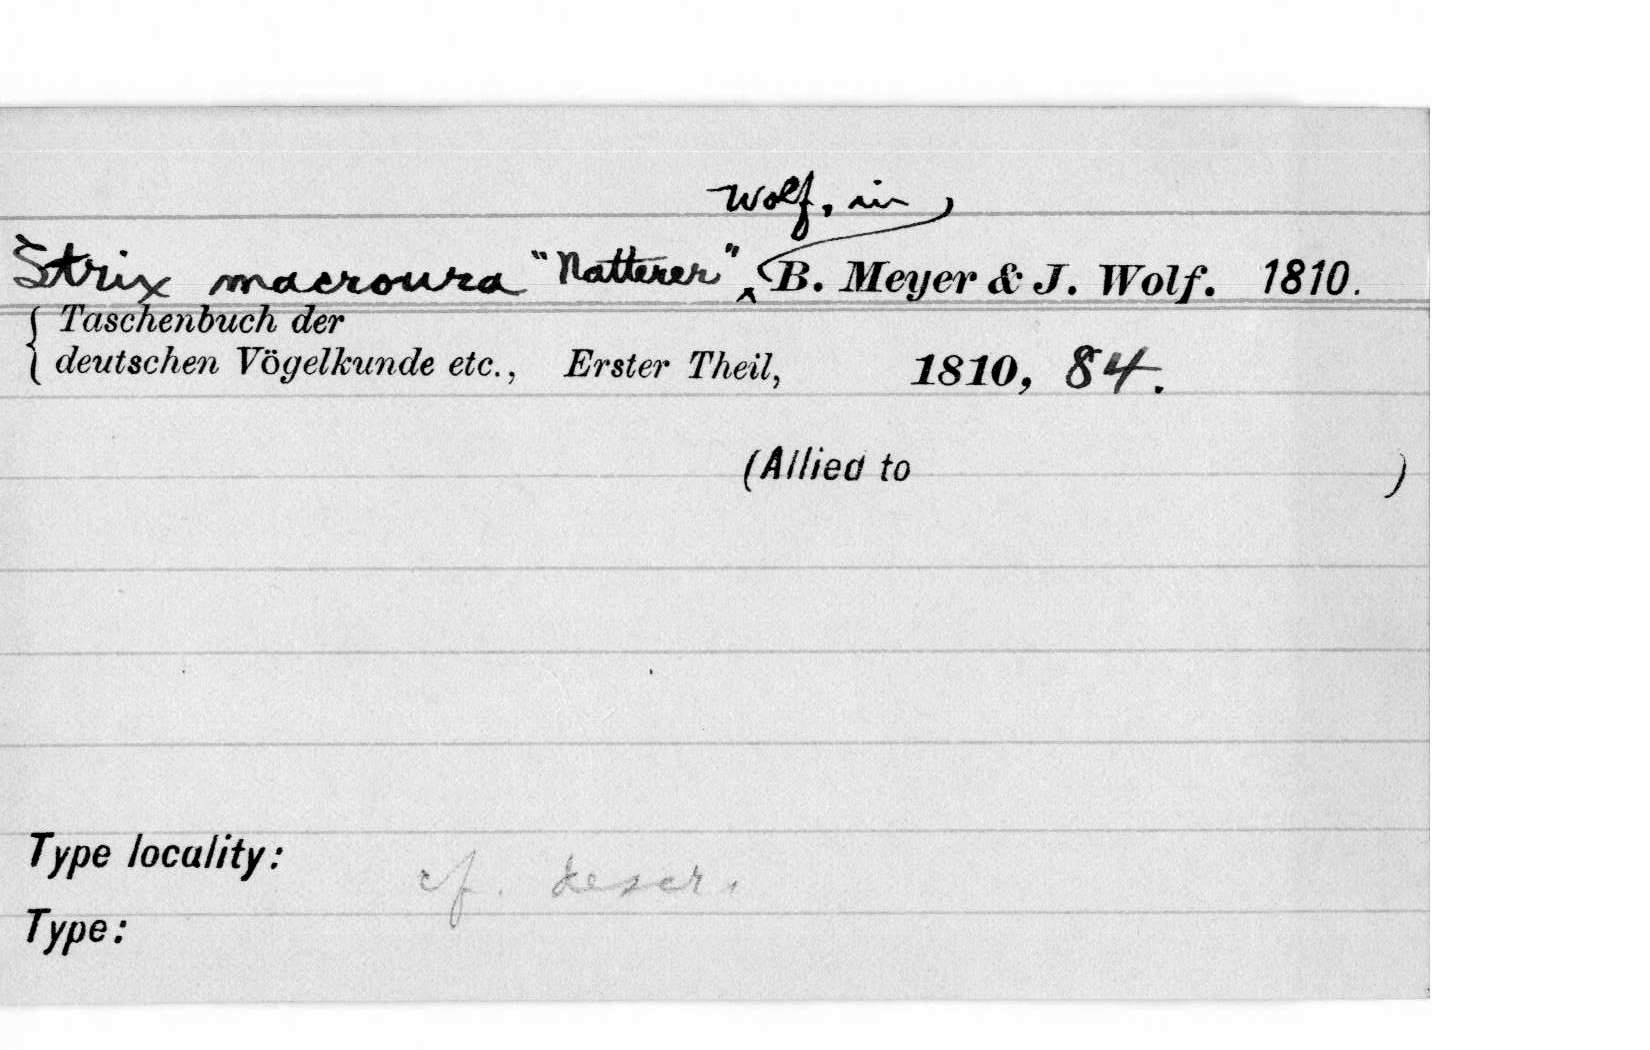 Wolf, in
Strix macroura "Natterer" ‸ B. Meyer & J. Wolf. 1810.
{ Taschenbuch der
deutschen Vögelkunde etc., Erster Theil, 1810, 84.
(Allied to )
Type locality:
cf. descr.
Type: